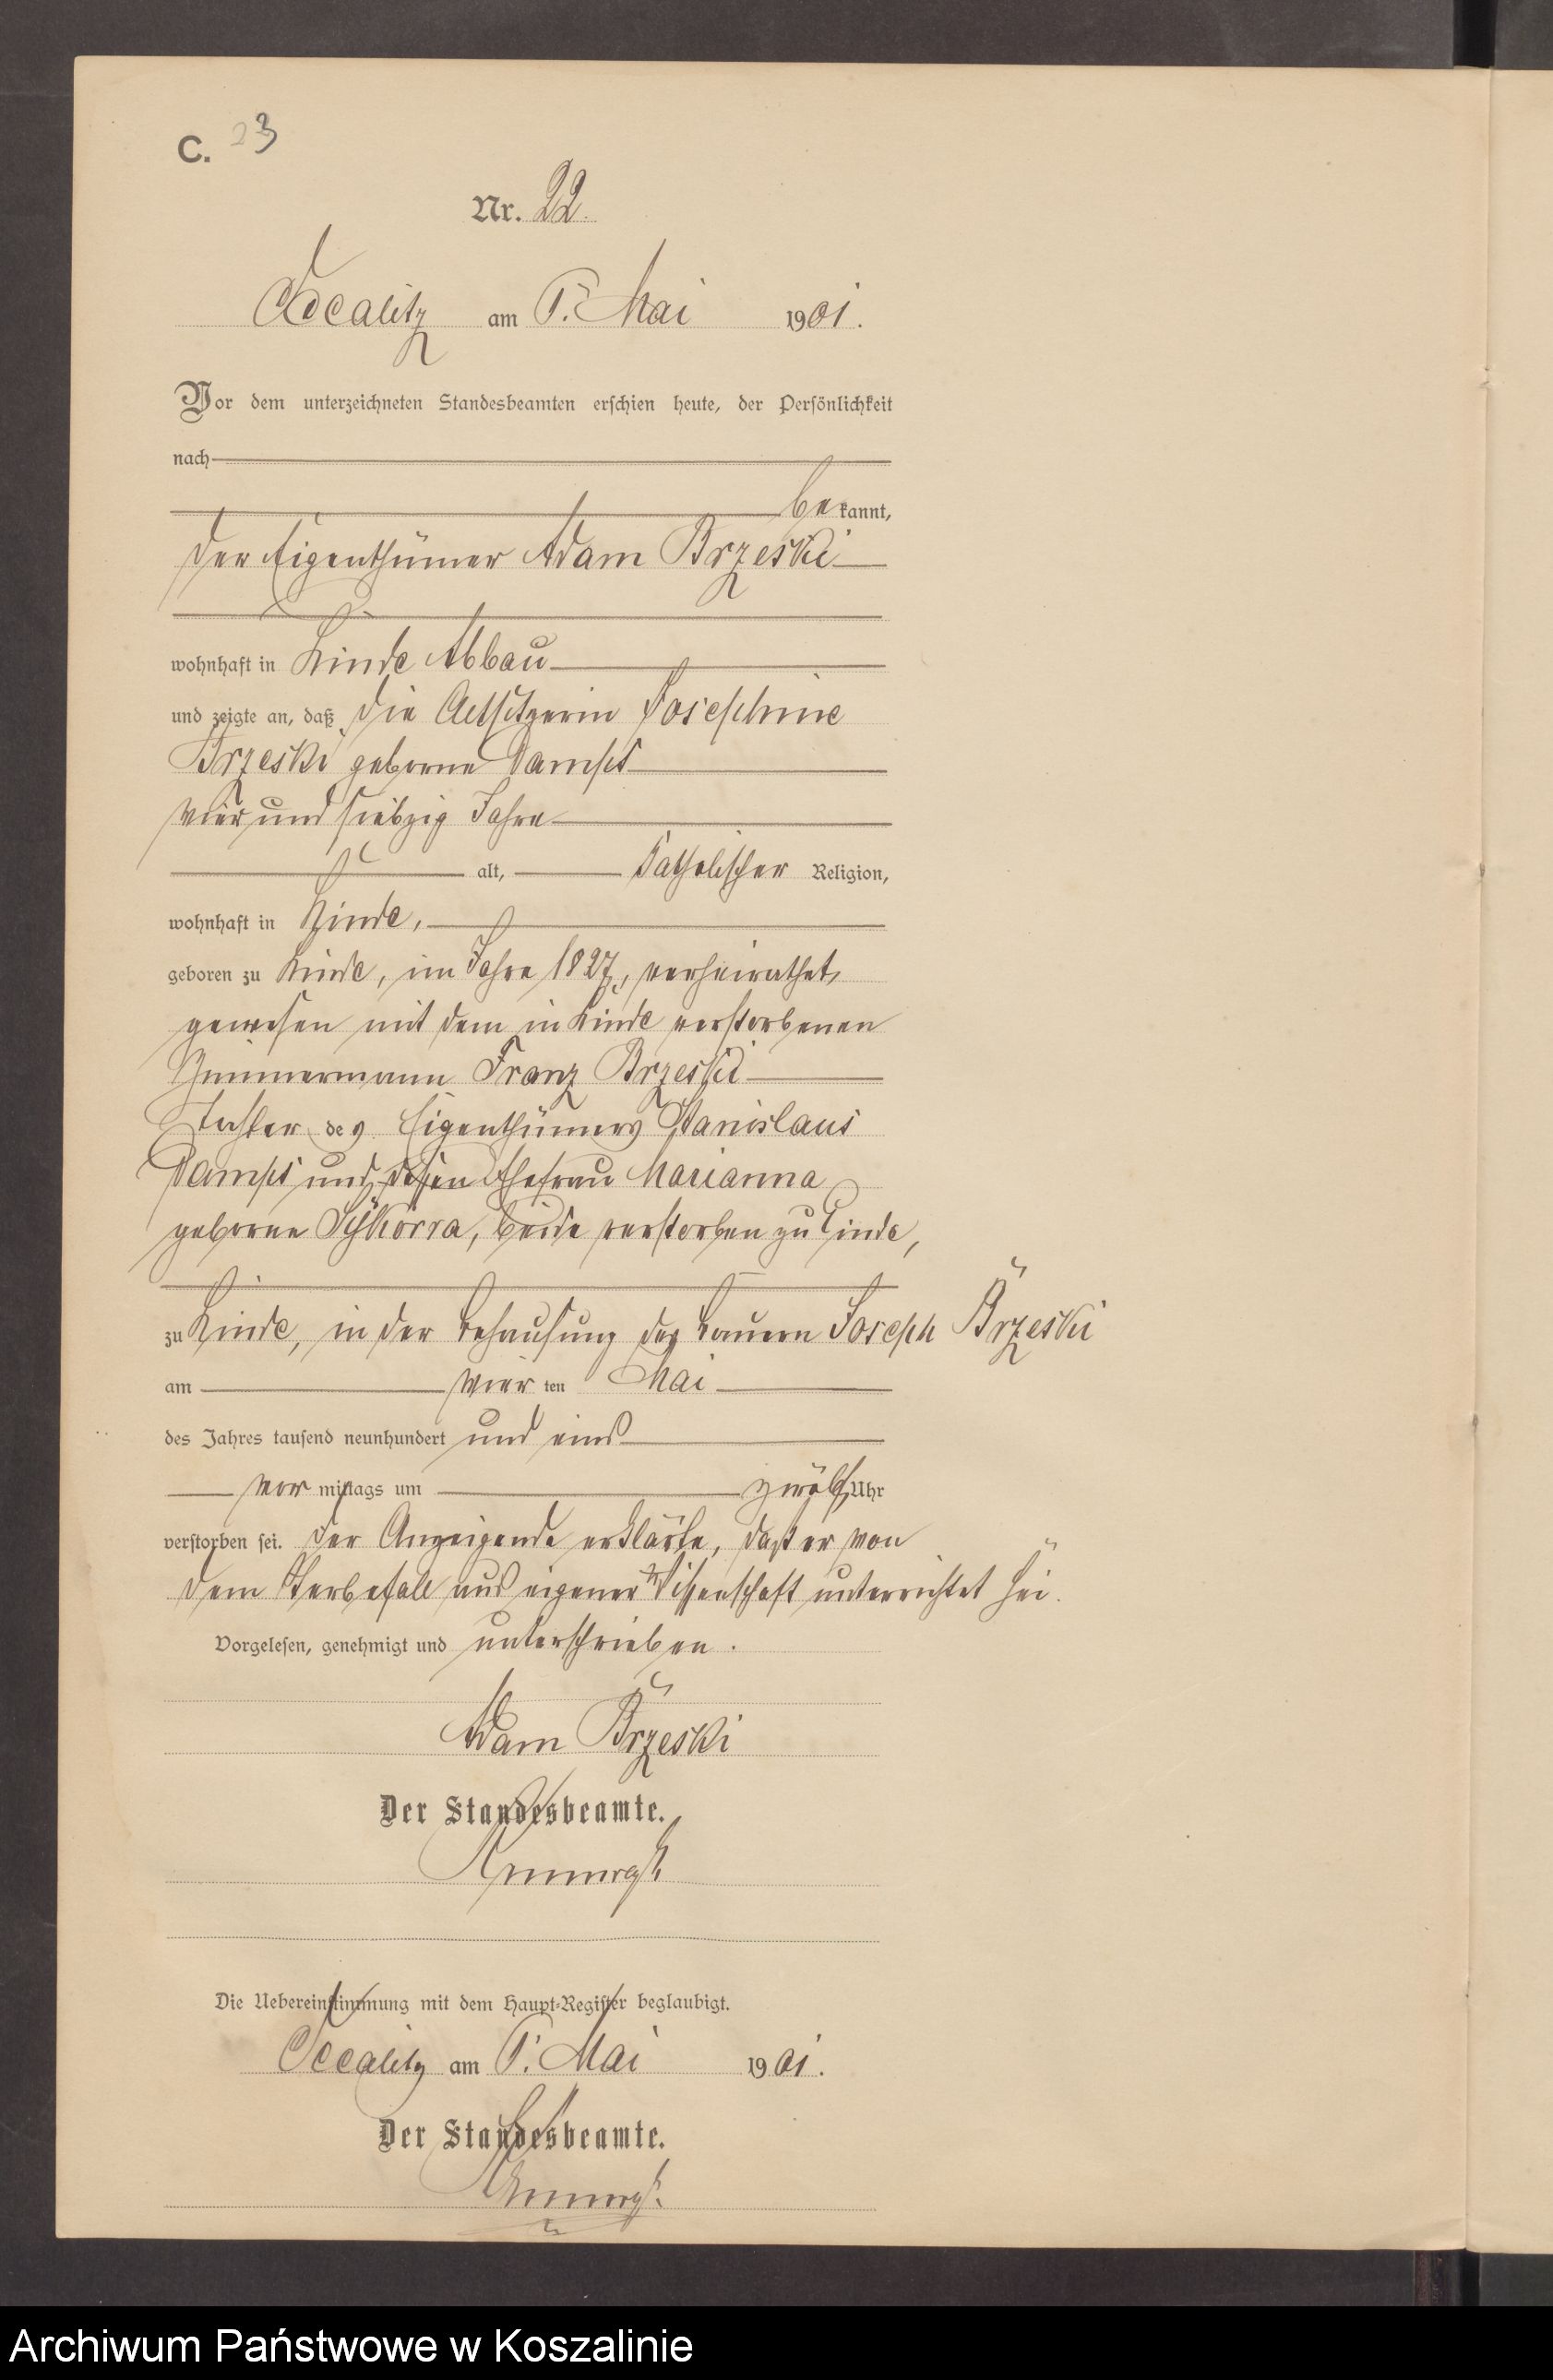 C. 23
Nr. 22.
Occalitz am 5. Mai 1901.
Vor dem unterzeichneten Standesbeamten erschien heute, der Persönlichkeit
nach
bekannt,
der Eigenthümer Adam Brzeski
wohnhaft in Linde Abbau
und zeigte an, daß die Altsitzerin Josephine
Brzeski geborne Damps
vier und siebzig Jahre
alt, katholischer Religion,
wohnhaft in Linde,
geboren zu Linde, im Jahre 1827, verheirathet
gewesen mit dem in Linde verstorbenen
Zimmermann Franz Brzeski
Tochter des Eigenthümers Stanislaus
Damps und dessen Ehefrau Marianna
geborne Sykorra, beide verstorben zu Linde,
zu Linde, in der Behausung des Bauern Joseph Brzeski
am vier ten Mai
des Jahres tausend neunhundert und eins
vor mittags um zwölf Uhr
verstorben sei. Der Anzeigende erklärte, daß er von
dem Sterbefall aus eigener Wissenschaft unterrichtet sei.
Vorgelesen, genehmigt und unterschrieben.
Adam Brzeski
Der Standesbeamte.
Die Uebereinstimmung mit dem Haupt-Register beglaubigt.
Occalitz am 5. Mai 1901.
Der Standesbeamte.
Archiwum Państwowe w Koszalinie